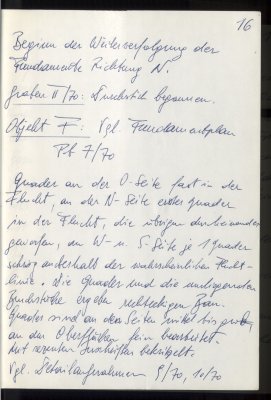 16
Beginn der Weiterverfolgung der
Fundamente Richtung N.
Graben II/70: Durchstich begonnen.
Objekt F: Vgl. Fundamentplan
Pt 7/70
Quader an der O-Seite fast in der
Flucht, an der N-Seite erster Quader
in der Flucht, die übrigen durcheinander
geworfen, an W- u S-Seite je 1 Quader
schräg außerhalb der wahrscheinlichen Flucht-
linie. Die Quader und die umliegenden
Fundstücke ergeben rechteckigen Bau.
Quader sind an den Seiten mittel bis grob,
an den Oberflächen fein bearbeitet.
Mit rezenten Inschriften bekritzelt.
Vgl. Detailaufnahmen 9/70, 10/70